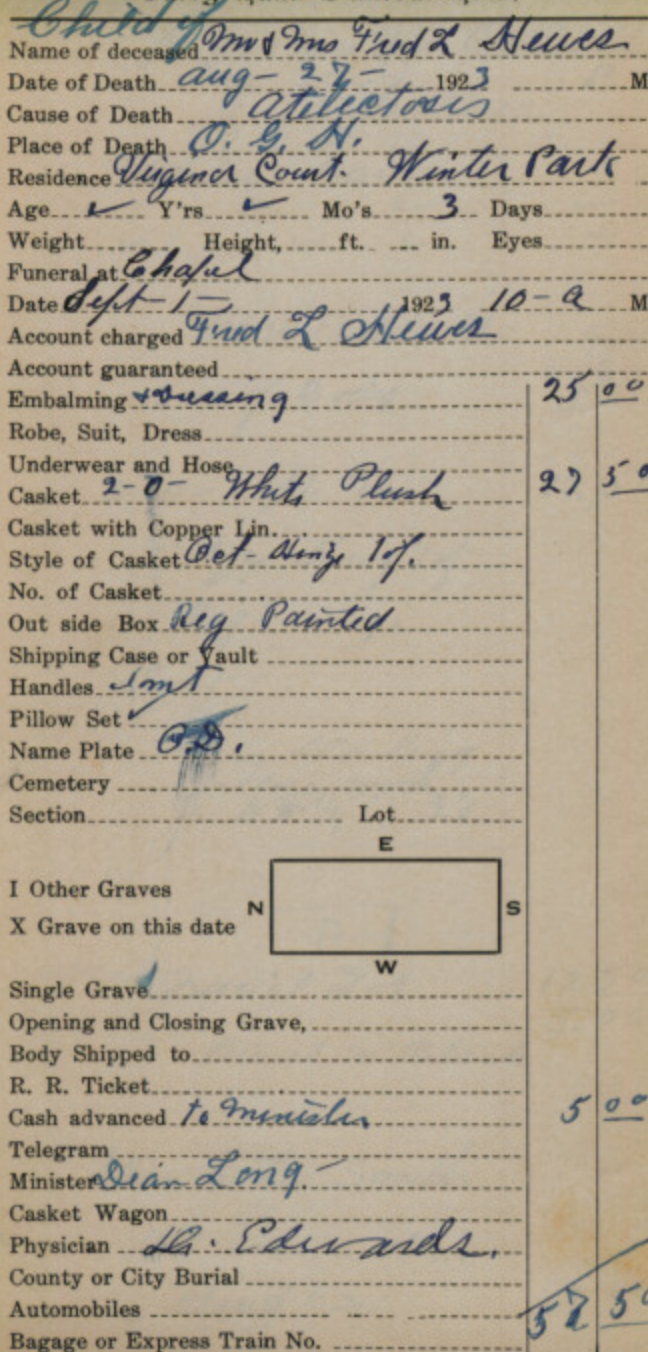 Child of
Name of deceased Mr & Mrs Fred L Hewes
Date of Death Aug - 27 - 1923 M
Cause of Death Atelectosis
Place of Death O. G. H.
Residence Virginia Court. Winter Park
Age ✓ Y'rs ✓ Mo's 3 Days
Weight Height, ft. in. Eyes
Funeral at Chapel
Date Sept - 1 - 1923 10 - a M
Account charged Fred L Hewes
Account guaranteed
Embalming & Dressing 25 00
Robe, Suit, Dress
Underwear and Hose
Casket 2-0- White Plush 27 50
Casket with Copper Lin.
Style of Casket Oct-
No. of Casket
Out side Box Reg Painted
Shipping Case or Vault
Handles
Pillow Set ✓
Name Plate
Cemetery
Section Lot
E
I Other Graves
N S
X Grave on this date
W
Single Grave
Opening and Closing Grave,
Body Shipped to
R. R. Ticket
Cash advanced to Minister 5 00
Telegram
Minister Dean Long -
Casket Wagon
Physician Dr. Edwards.
County or City Burial
Automobiles 57 50
Bagage or Express Train No.